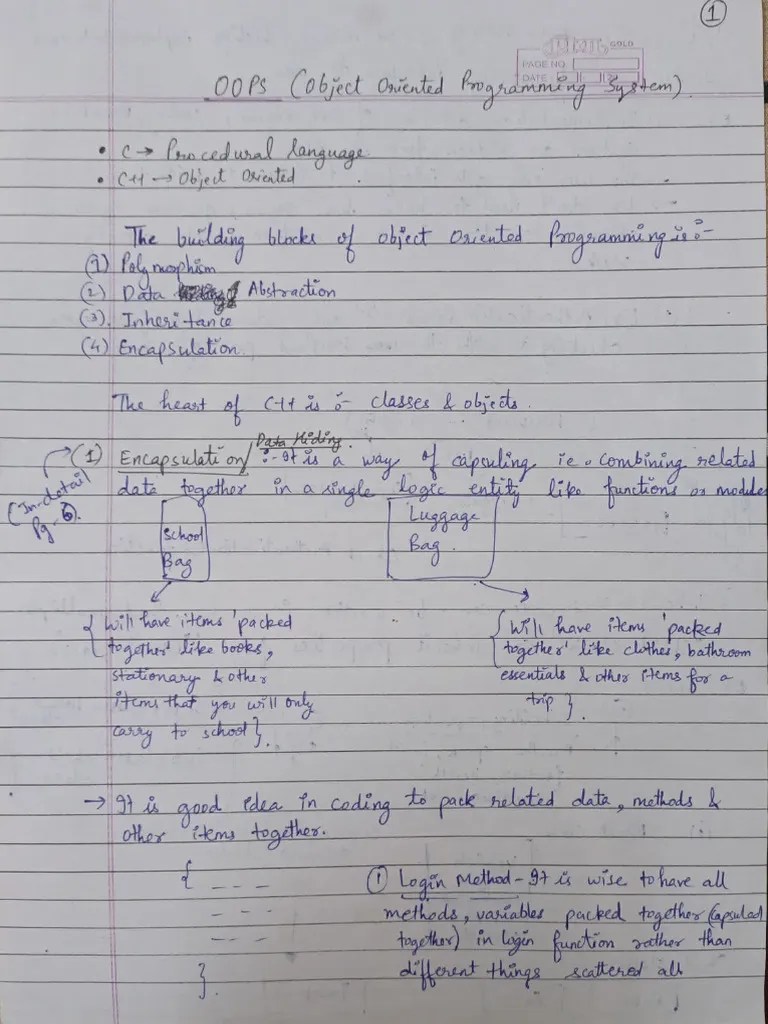 1
GOLD
PAGE NO.
DATE
OOPS (Object Oriented Programming System)
• C → Procedural language
• C++ → Object Oriented
The building blocks of Object Oriented Programming is :-
(1) Polymorphism
(2) Data Abstraction
(3). Inheritance
(4) Encapsulation
The heart of C++ is :- classes & objects.
Data Hiding.
(1) Encapsulation/ :- It is a way of capsuling ie. combining related
data together in a single logic entity like functions or modules
(In-detail
Pg-6).
School
Bag
Luggage
Bag.
{ Will have items 'packed
together' like books,
stationary & other
items that you will only
carry to school }.
{ Will have items 'packed
together' like clothes, bathroom
essentials & other items for a
trip }.
→ It is good idea in coding to pack related data, methods &
other items together.
{ - - -
- - -
- - -
}.
① Login Method - It is wise to have all
methods, variables packed together (capsuled
together) in login function rather than
different things scattered all